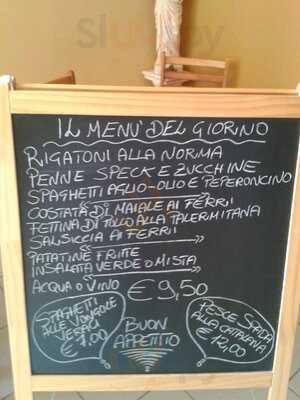 IL MENÙ DEL GIORINO
RIGATONI ALLA NORMA
PENNE SPECK E ZUCCHINE
SPAGHETTI AGLIO OLIO E PEPERONCINO
COSTATA DI MAIALE AI FERRI
FETTINA DI POLLO ALLA PALERMITANA
SALSICCIA AI FERRI
PATATINE FRITTE
INSALATA VERDE O MISTA
ACQUA O VINO €9,50
SPAGHETTI
ALLE VONGOLE
VERACI
€7.00
BUON
APPETITO
PESCE SPADA
ALLA CATALANA
€12,00